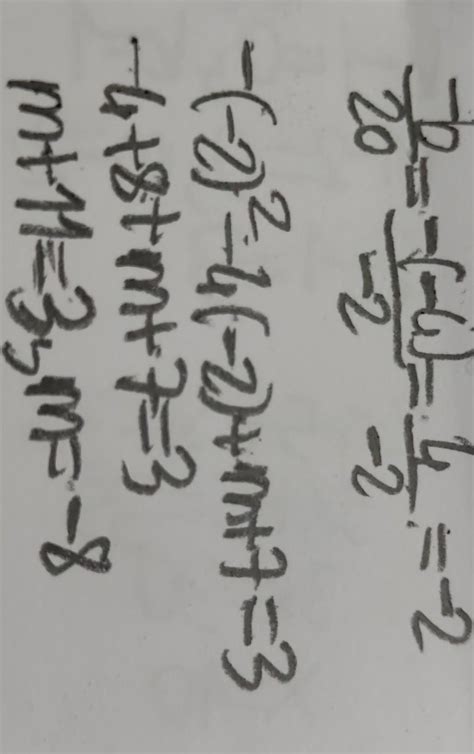 -b/20 = -(-4)/-2 = 4/-2 = -2
-(-2)²-4(-2)+m+7=3
-4+8+m+7=3
m+11=3, m=-8